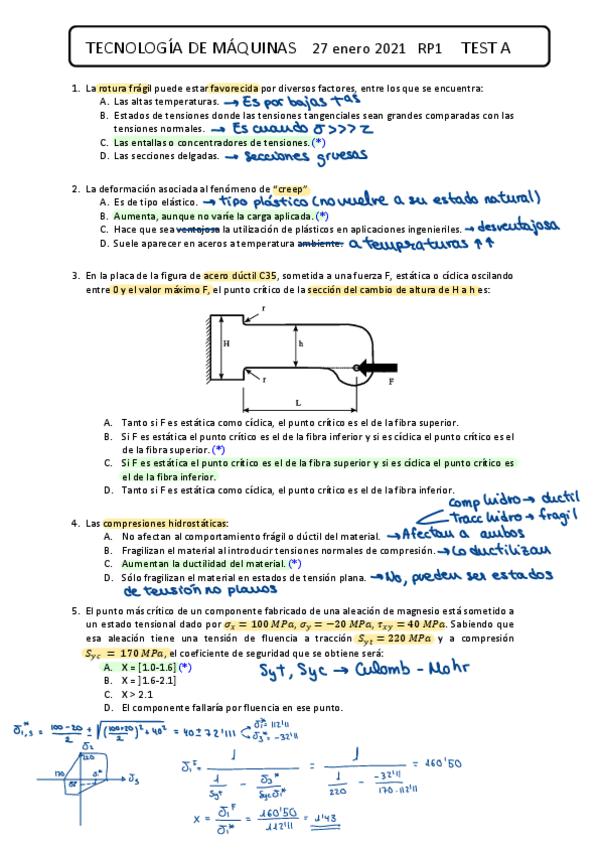 TECNOLOGÍA DE MÁQUINAS 27 enero 2021 RP1 TEST A
1. La rotura frágil puede estar favorecida por diversos factores, entre los que se encuentra:
A. Las altas temperaturas. → Es por bajas tas
B. Estados de tensiones donde las tensiones tangenciales sean grandes comparadas con las
tensiones normales. → Es cuando σ >>> z
C. Las entallas o concentradores de tensiones. (*)
D. Las secciones delgadas. → secciones gruesas
2. La deformación asociada al fenómeno de “creep”
A. Es de tipo elástico. → tipo plástico (no vuelve a su estado natural)
B. Aumenta, aunque no varíe la carga aplicada. (*)
C. Hace que sea ventajosa la utilización de plásticos en aplicaciones ingenieriles. → desventajosa
D. Suele aparecer en aceros a temperatura ambiente. a temperaturas ↑↑
3. En la placa de la figura de acero dúctil C35, sometida a una fuerza F, estática o cíclica oscilando
entre 0 y el valor máximo F, el punto crítico de la sección del cambio de altura de H a h es:
r
H
h
r
F
L
A. Tanto si F es estática como cíclica, el punto crítico es el de la fibra superior.
B. Si F es estática el punto crítico es el de la fibra inferior y si es cíclica el punto crítico es el
de la fibra superior. (*)
C. Si F es estática el punto crítico es el de la fibra superior y si es cíclica el punto crítico es
el de la fibra inferior.
D. Tanto si F es estática como cíclica, el punto crítico es el de la fibra inferior.
comp hidro → ductil
Tracc hidro → fragil
4. Las compresiones hidrostáticas:
A. No afectan al comportamiento frágil o dúctil del material. → Afectan a ambos
B. Fragilizan el material al introducir tensiones normales de compresión. → Lo ductilizan
C. Aumentan la ductilidad del material. (*)
D. Sólo fragilizan el material en estados de tensión plana. → No, pueden ser estados
de tensión no planos
5. El punto más crítico de un componente fabricado de una aleación de magnesio está sometido a
un estado tensional dado por σx = 100 MPa, σy = −20 MPa, τxy = 40 MPa. Sabiendo que
esa aleación tiene una tensión de fluencia a tracción Syt = 220 MPa y a compresión
Syc = 170 MPa, el coeficiente de seguridad que se obtiene será:
A. X = [1.0-1.6] (*)
Syt, Syc → Culomb - Mohr
B. X = ]1.6-2.1]
C. X > 2.1
D. El componente fallaría por fluencia en ese punto.
σ1,3* = 100-20/2 ± √((100+20/2)² + 40²) = 40 ± 72'111 σ1* = 112'11 σ3* = -32'11
σ1F = 1 / (1/Syt - σ3*/Syc σ1*) = 1 / (1/220 - -32'11/170·112'11) = 160'50
X = σ1F/σ1* = 160'50/112'11 = 1'43